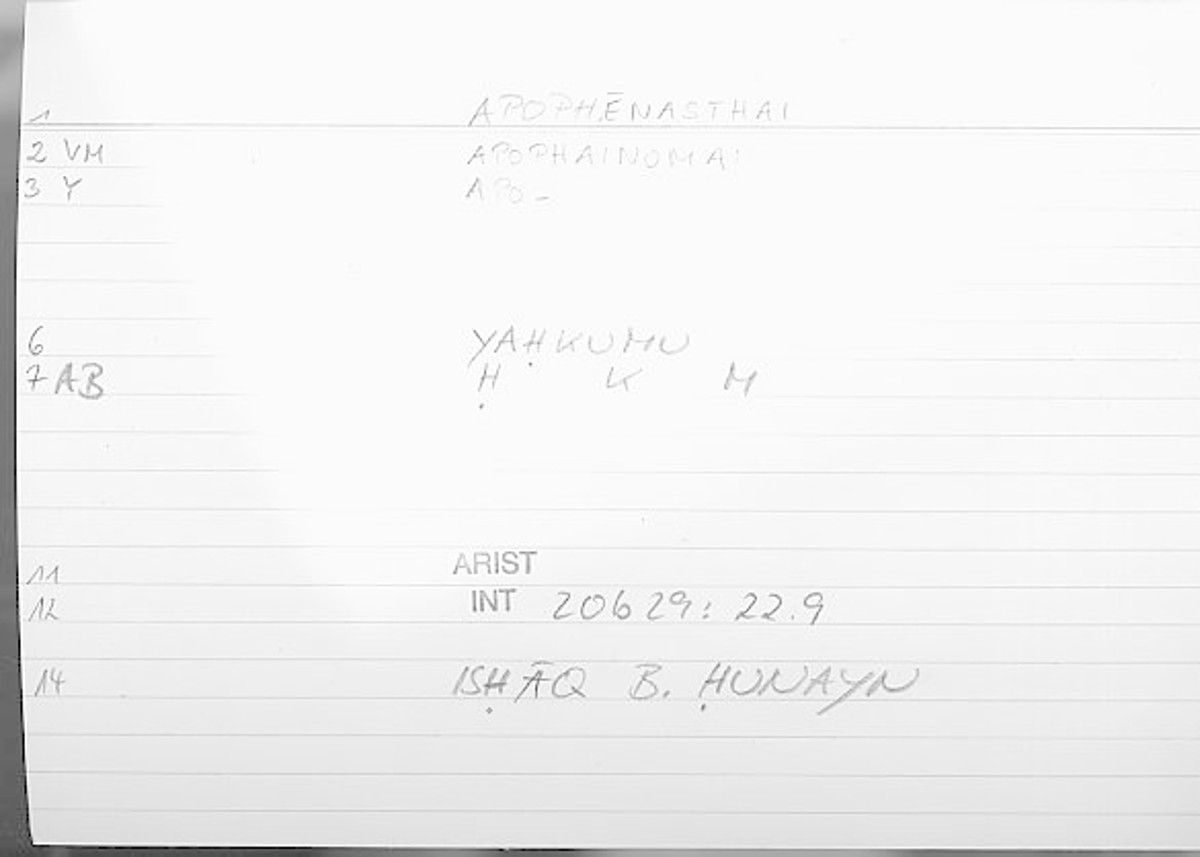 1 APOPHĒNASTHAI
2 VM APOPHAINOMAI
3 Y APO-
6 YAḤKUMU
7 AB Ḥ K M
11 ARIST
12 INT 20629: 22.9
14 ISḤĀQ B. ḤUNAYN